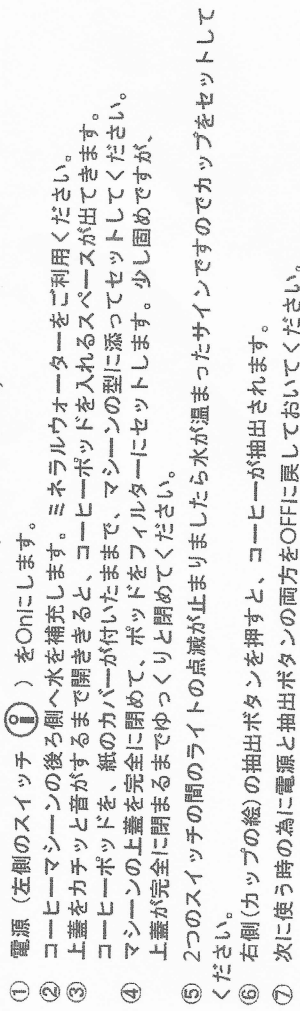 ① 電源（左側のスイッチ ）をOnにします。
② コーヒーマシーンの後ろ側へ水を補充します。ミネラルウォーターをご利用ください。
③ 上蓋をカチッと音がするまで開ききると、コーヒーポッドを入れるスペースが出てきます。
コーヒーポッドを、紙のカバーが付いたままで、マシーンの型に添ってセットしてください。
④ マシーンの上蓋を完全に閉めて、ポッドをフィルターにセットします。少し固めですが、
上蓋が完全に閉まるまでゆっくりと閉めてください。
⑤ 2つのスイッチの間のライトの点滅が止まりましたら水が温まったサインですのでカップをセットして
ください。
⑥ 右側(カップの絵)の抽出ボタンを押すと、コーヒーが抽出されます。
⑦ 次に使う時の為に電源と抽出ボタンの両方をOFFに戻しておいてください。